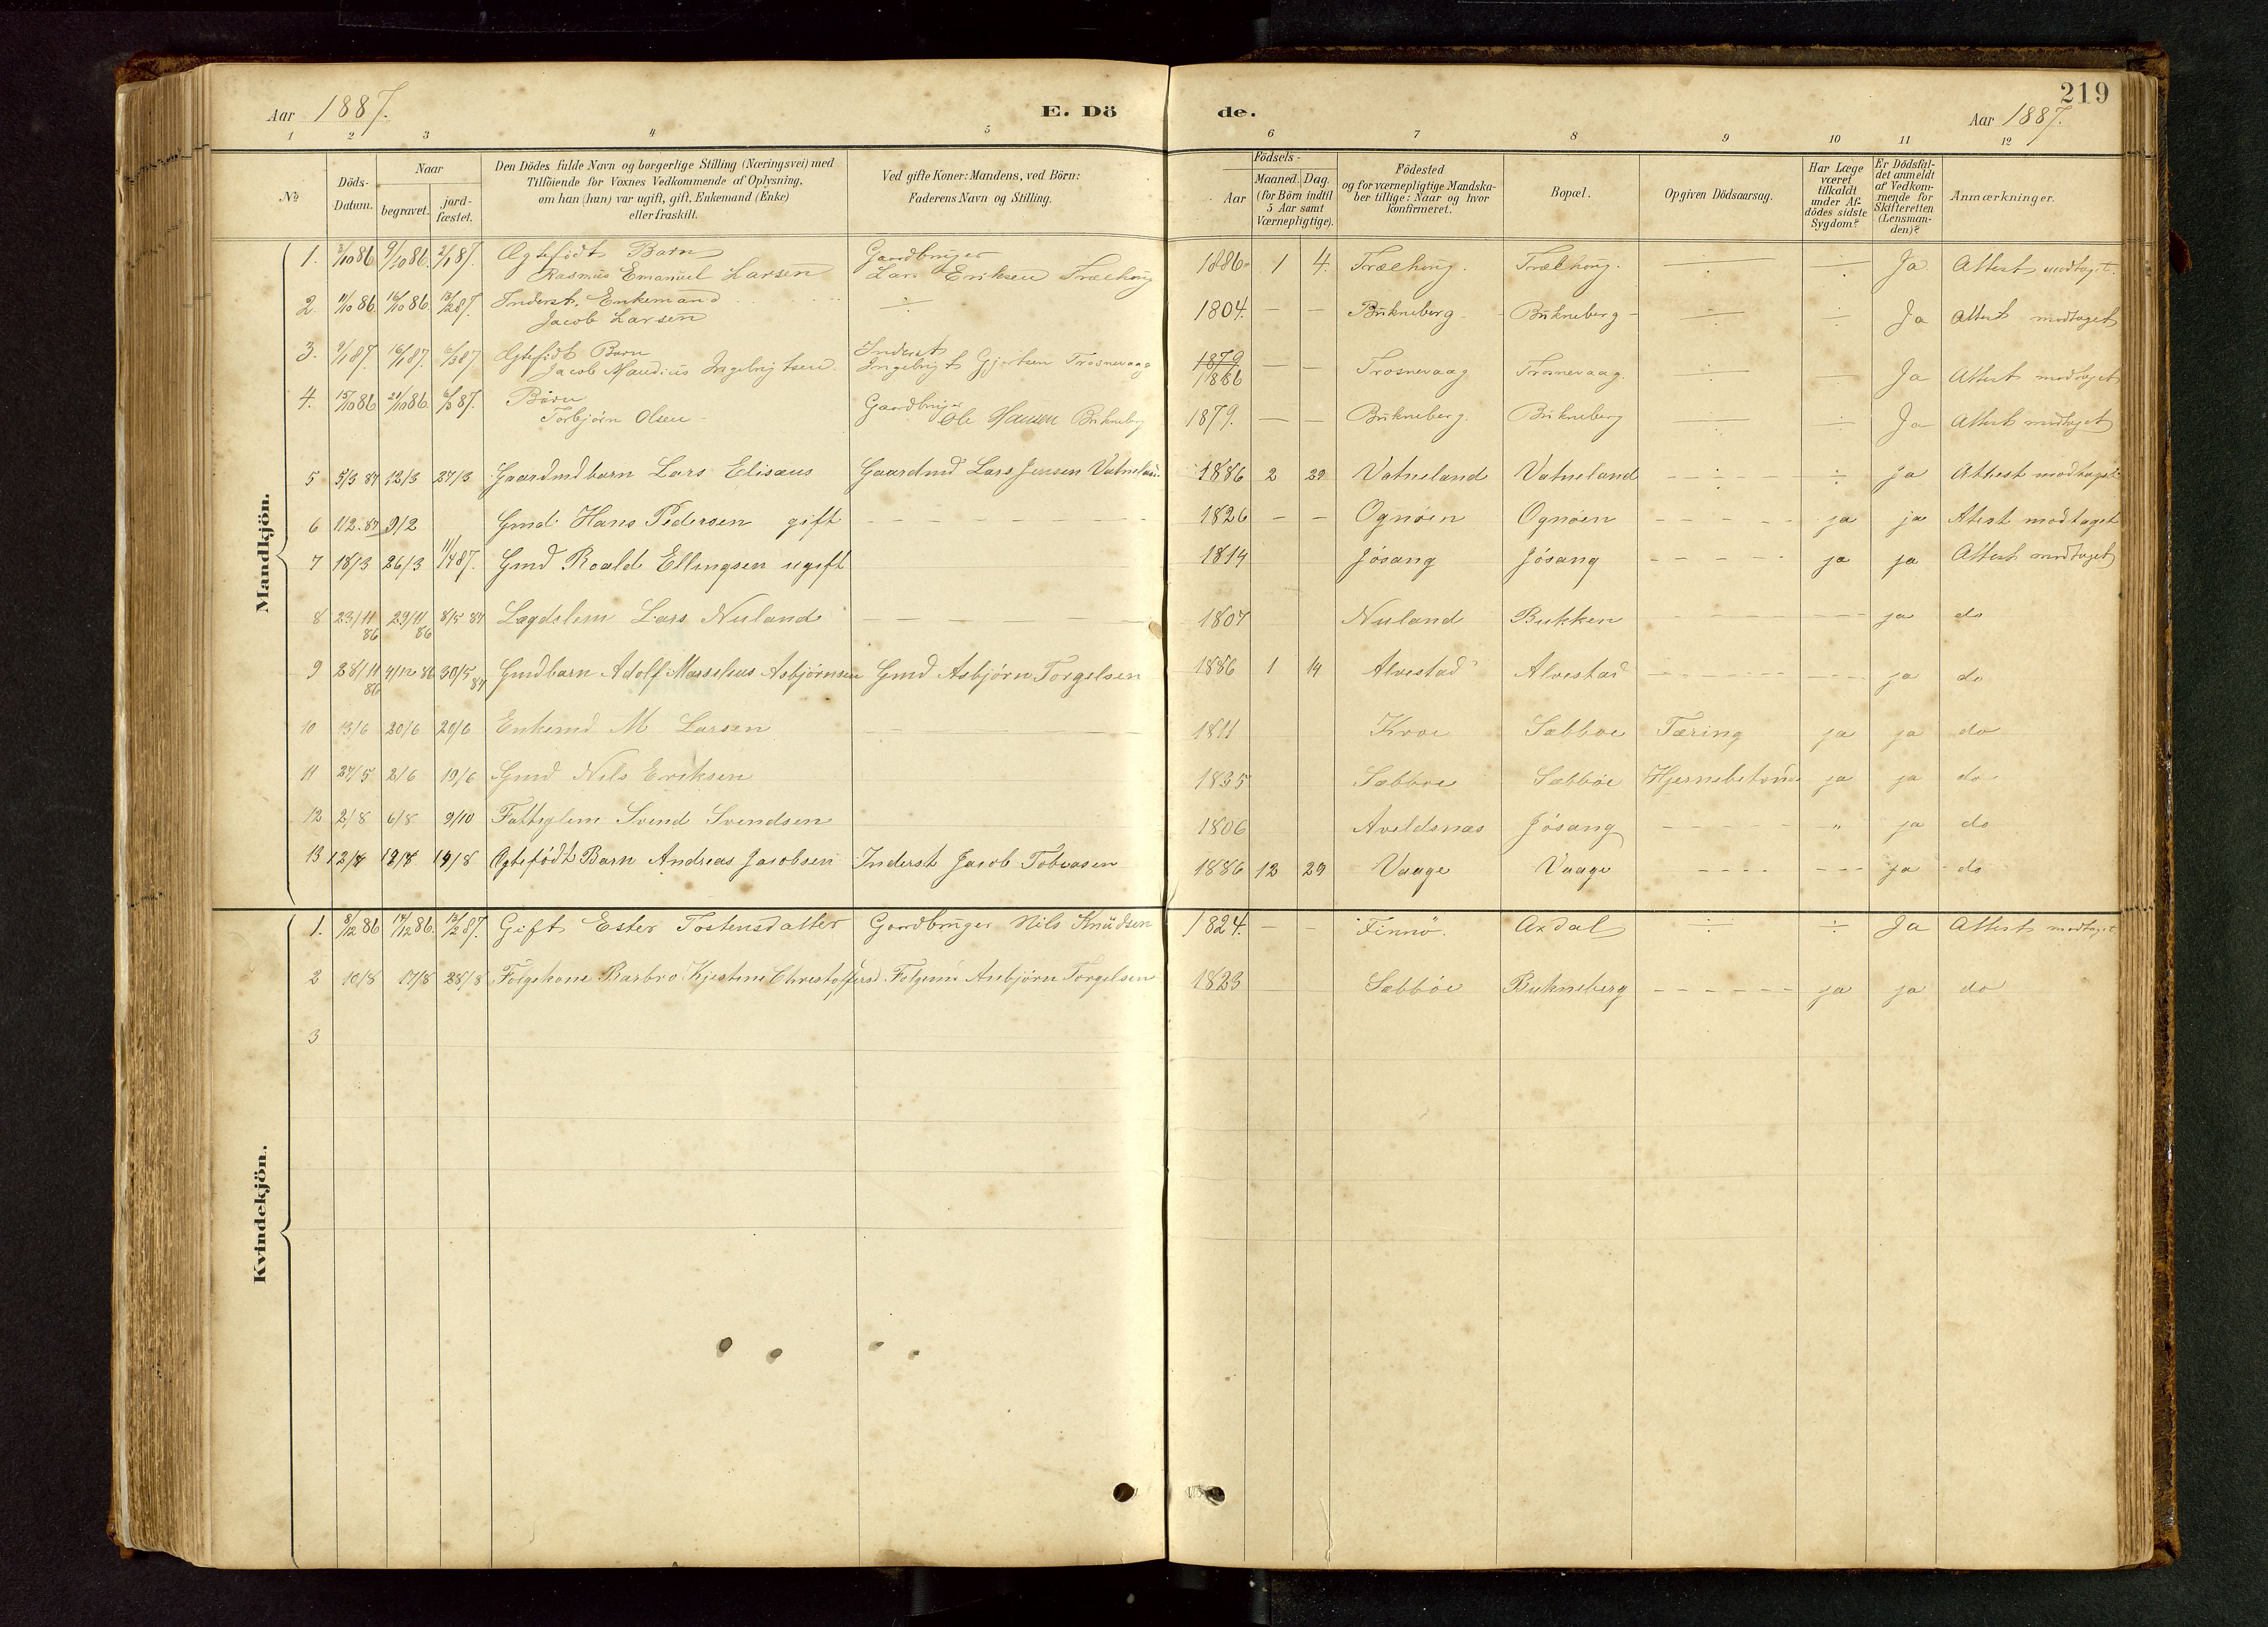 219
Aar 1887. E. Dö de. Aar 1887.
1 2 3 4 5 6 7 8 9 10 11 12
No
Döds-Datum.
Naar
begravet.
jord-fæstet.
Den Dödes fulde Navn og borgerlige Stilling (Næringsvei) med
Tilföiende for Voxnes Vedkommende af Oplysning,
om han (hun) var ugift, gift, Enkemand (Enke)
eller fraskilt.
Ved gifte Koner: Mandens, ved Börn:
Faderens Navn og Stilling.
Födsels-
Aar
Maaned. Dag.
(for Börn indtil
5 Aar samt
Værnepligtige).
Födested
og for værnepligtige Mandska-
ber tillige: Naar og hvor
konfirmeret.
Bopæl.
Opgiven Dödsaarsag.
Har Læge
været
tilkaldt
under Af-
dödes sidste
Sygdom?
Er Dödsfal-
det anmeldt
af Vedkom-
mende for
Skifteretten
(Lensman-
den)?
Anmærkninger.
Mandkjön.
1. 3/10 86 9/10 86. 2/1 87. Ægtefødt Barn Rasmus Emanuel Larsen Gaardbruger Lars Eriksen Trælhoug 1886 1 4. Trælhoug. Trælhoug. ÷ ÷ Ja Attest modtaget.
2. 11/10 86 16/10 86 13/2 87. Inderst. Enkemand Jacob Larsen ÷ 1804. — — Bukneberg Bukneberg ÷ ÷ Ja Attest modtaget
3. 9/1 87. 16/1 87. 6/3 87 Ægtefødt Barn Jacob Maudius Ingebrigtsen. Inderst Ingebrigt Gjertsen Trosnevaag 1879 1886 — — Trosnevaag Trosnevaag. ÷ ÷ Ja Attest modtaget
4. 15/10 86 21/10 86 6/3 87. Barn Torbjørn Olsen Gaardbruger Ole Hansen Bukneberg 1879. — — Bukneberg. Bukneberg ÷ ÷ Ja Attest modtaget
5 5/3 87 12/3 27/3 Gaardmdbarn Lars Elisæus Gaardmd Lars Jensen Vatneland 1886 2 29 Vatneland Vatneland ÷ ÷ ja Attest modtaget
6 1/2. 87 9/2 Gmd. Hans Pedersen gift 1826 — — Ognøen Ognøen ja ja Atest modtaget
7 18/3 26/3 11/4 87. Gmd Roald Ellingsen ugift 1814 Jøsang Jøsang ja ja Attest modtaget
8 23/11 86 29/11 86 8/5 87 Lægdslem Lars Nuland 1807 Nuland Bukken ja do
9 28/11 86 4/12 86 30/5 87 Gmdbarn Adolf Marselius Asbjørnsen Gmd Asbjørn Torgelsen 1886 1 14 Alvestad Alvestad ja do
10 13/6 20/6 20/6 Enkemd M Larsen 1811 Kroe Sæbbøe Tæring ja ja do
11 27/5 2/6 19/6 Gmd Nils Eriksen 1835 Sæbbøe Sæbbøe ja ja do
12 2/8 6/8 9/10 Fattiglem Svend Svendsen 1806 Aveldsnæs Jøsang " ja do
13 12/8 17/8 19/8 Ægtefødt Barn Andreas Jacobsen Inderst Jacob Tobiasen 1886 12 29 Vaage Vaage ja do
Kvindekjön.
1. 8/12 86 14/12 86. 13/2 87. Gift Ester Tostensdatter Gaardbruger Nils Knudsen 1824. — — Finnø. Axdal ÷ ÷ Ja Attest modtaget
2 10/8 17/8 28/8 Følgekone Barbro Kjestine Christoffersd. Følgemd Asbjørn Torgelsen 1823 Sæbbøe Bukneberg ja ja do
3